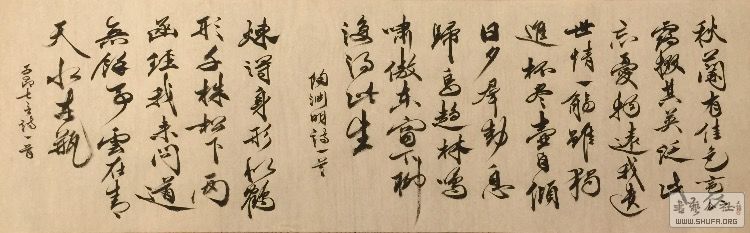 秋蘭有佳色裛
露掇其英泛此
忘憂物遠我遺
世情一觴雖獨
進杯尽壺自傾
日夕羣動息
歸鳥趨林鳴
嘯傲東窗下聊
復得此生
陶淵明詩一首
煉得身形似鶴
形千株松下兩
函經我来問道
無餘事雲在青
天水在瓶
七言詩一首
WWW.SHUFA.ORG